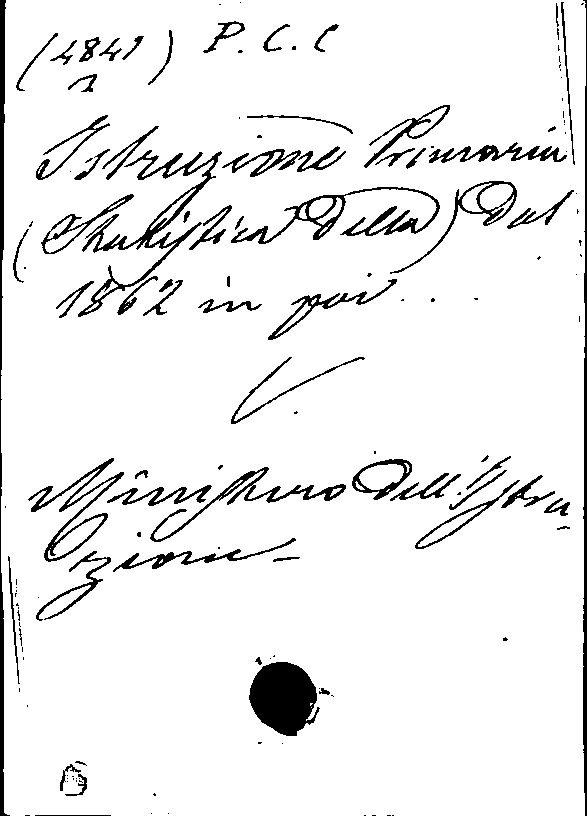 (4841) P. C. C
1
Istruzione Primaria
(Statistica della) Dal
1862 in poi...
V.
Ministero dell'Istru-
zione -